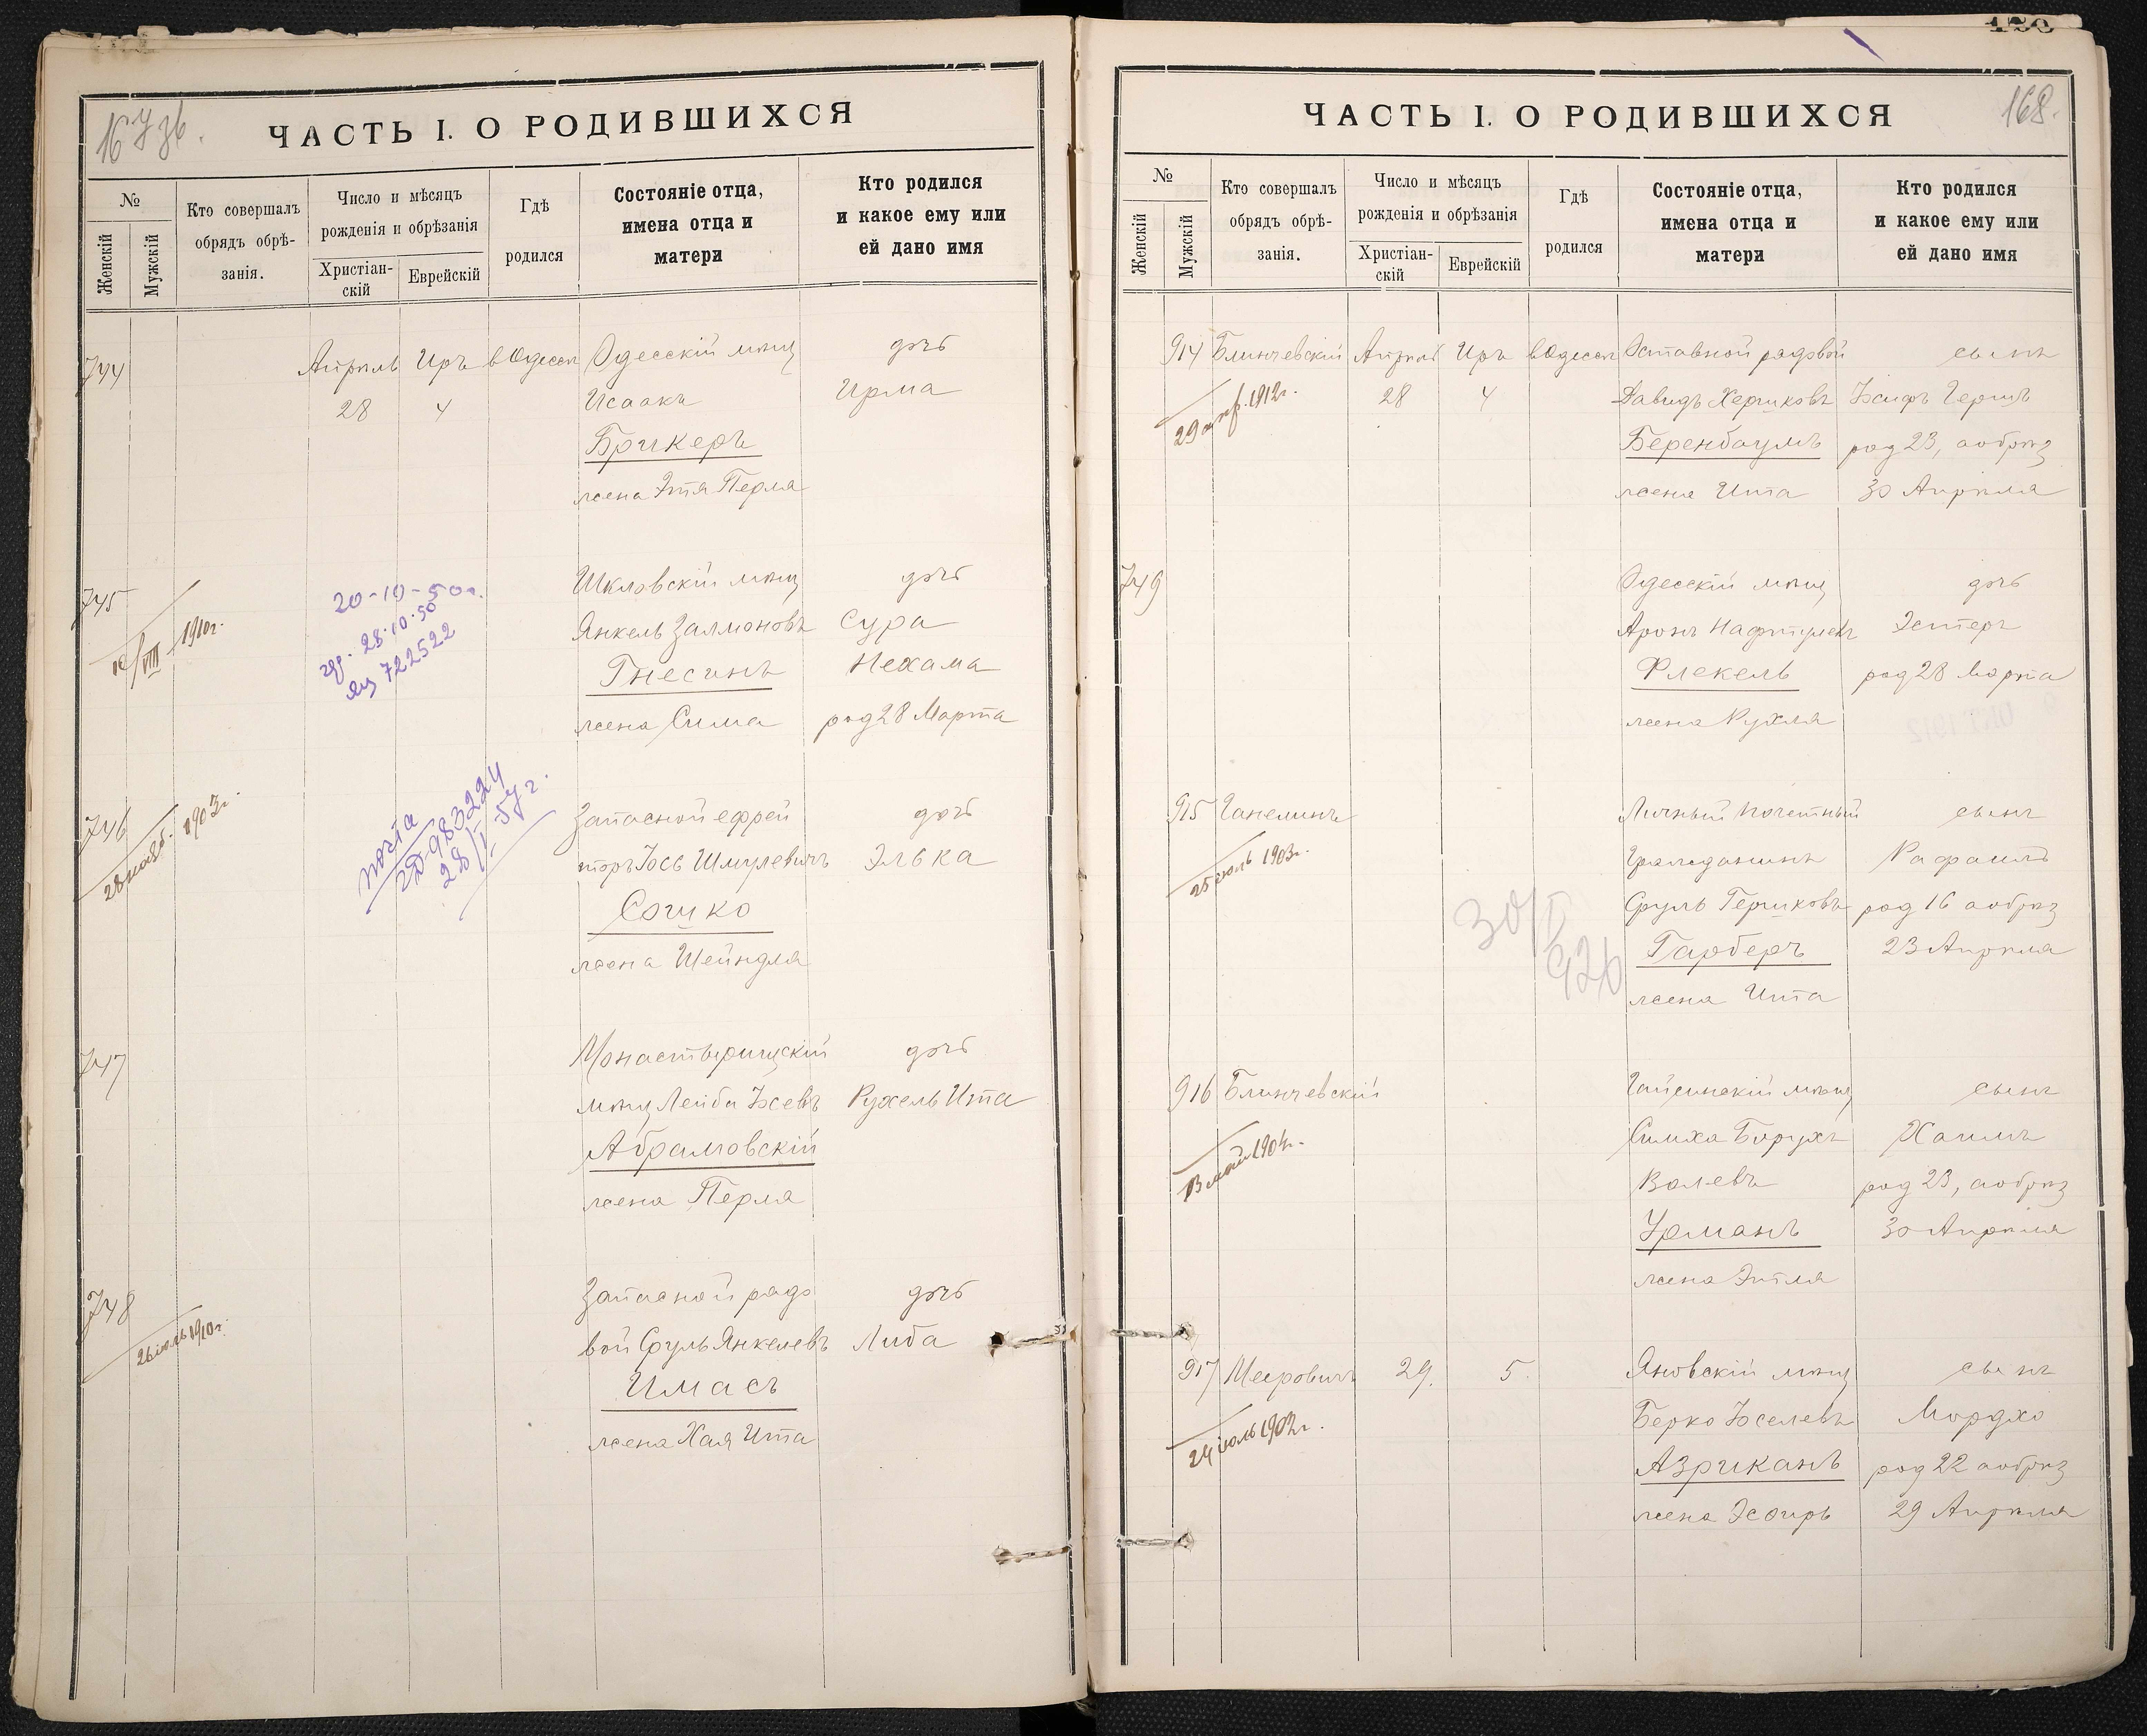 167 зв.
ЧАСТЬ I. О РОДИВШИХСЯ
№
Женскій
Мужскій
Кто совершалъ
обрядъ обрѣ-
занія.
Число и мѣсяцъ
рожденія и обрѣзанія
Христіан-
скій
Еврейскій
Гдѣ
родился
Состояніе отца,
имена отца и
матери
Кто родился
и какое ему или
ей дано имя
744 Апрѣль Иръ вОдессѣ Одесскій мѣщ дочь
28 4 Исаакъ Ирма
Брикеръ
жена Этя Перля
745 Шкловскій мѣщ дочь
VIII 1910г.
20-10-50г.
28.10.50
722522
Янкель Залмановъ Сура
Гнесинъ Нехама
жена Сима род 28 Марта
746 Запасной ефрей дочь
28 1903г.
почта
983224
28/I-57г.
торъ Іось Шмулевичъ Элька
Сошко
жена Шейндля
747 Монастырищскій дочь
мѣщ Лейба Іосевъ Рухель Ита
Абрамовскій
жена Перля
748 Запасной рядо дочь
26 іюль 1910г.
вой Сруль Янкелевъ Либа
Имасъ
жена Хая Ита
168.
ЧАСТЬ I. О РОДИВШИХСЯ
№
Женскій
Мужскій
Кто совершалъ
обрядъ обрѣ-
занія.
Число и мѣсяцъ
рожденія и обрѣзанія
Христіан-
скій
Еврейскій
Гдѣ
родился
Состояніе отца,
имена отца и
матери
Кто родился
и какое ему или
ей дано имя
914 Блинчевскій Апрѣль Иръ вОдессѣ Отставной рядовой сынъ
29 апр. 1912г.
28 4 Давидъ Хершковъ Іосифъ Гершъ
Беренбаумъ род 23, а обрѣз
жена Ита 30 Апрѣля
749 Одесскій мѣщ дочь
Аронъ Нафтулевъ Эстеръ
Флекель род 28 Марта
жена Рухля
915 Ганелинъ Личный Почетный сынъ
25 іюль 1903г.
Гражданинъ Рафаилъ
Сруль Гершковъ род 16 а обрѣз
30/I
926
Гарберъ 23 Апрѣля
жена Ита
916 Блинчевскій Гайсинскій мѣщ сынъ
Симха Борухъ Хаимъ
13 май 1904г.
Волевъ род 23, а обрѣз
Урманъ 30 Апрѣля
жена Этля
917 Мееровичъ 29. 5. Яновскій мѣщ сынъ
Берко Іоселевъ Мордко
24 іюль 1902г.
Азриканъ род 22 а обрѣз
жена Эсфирь 29 Апрѣля